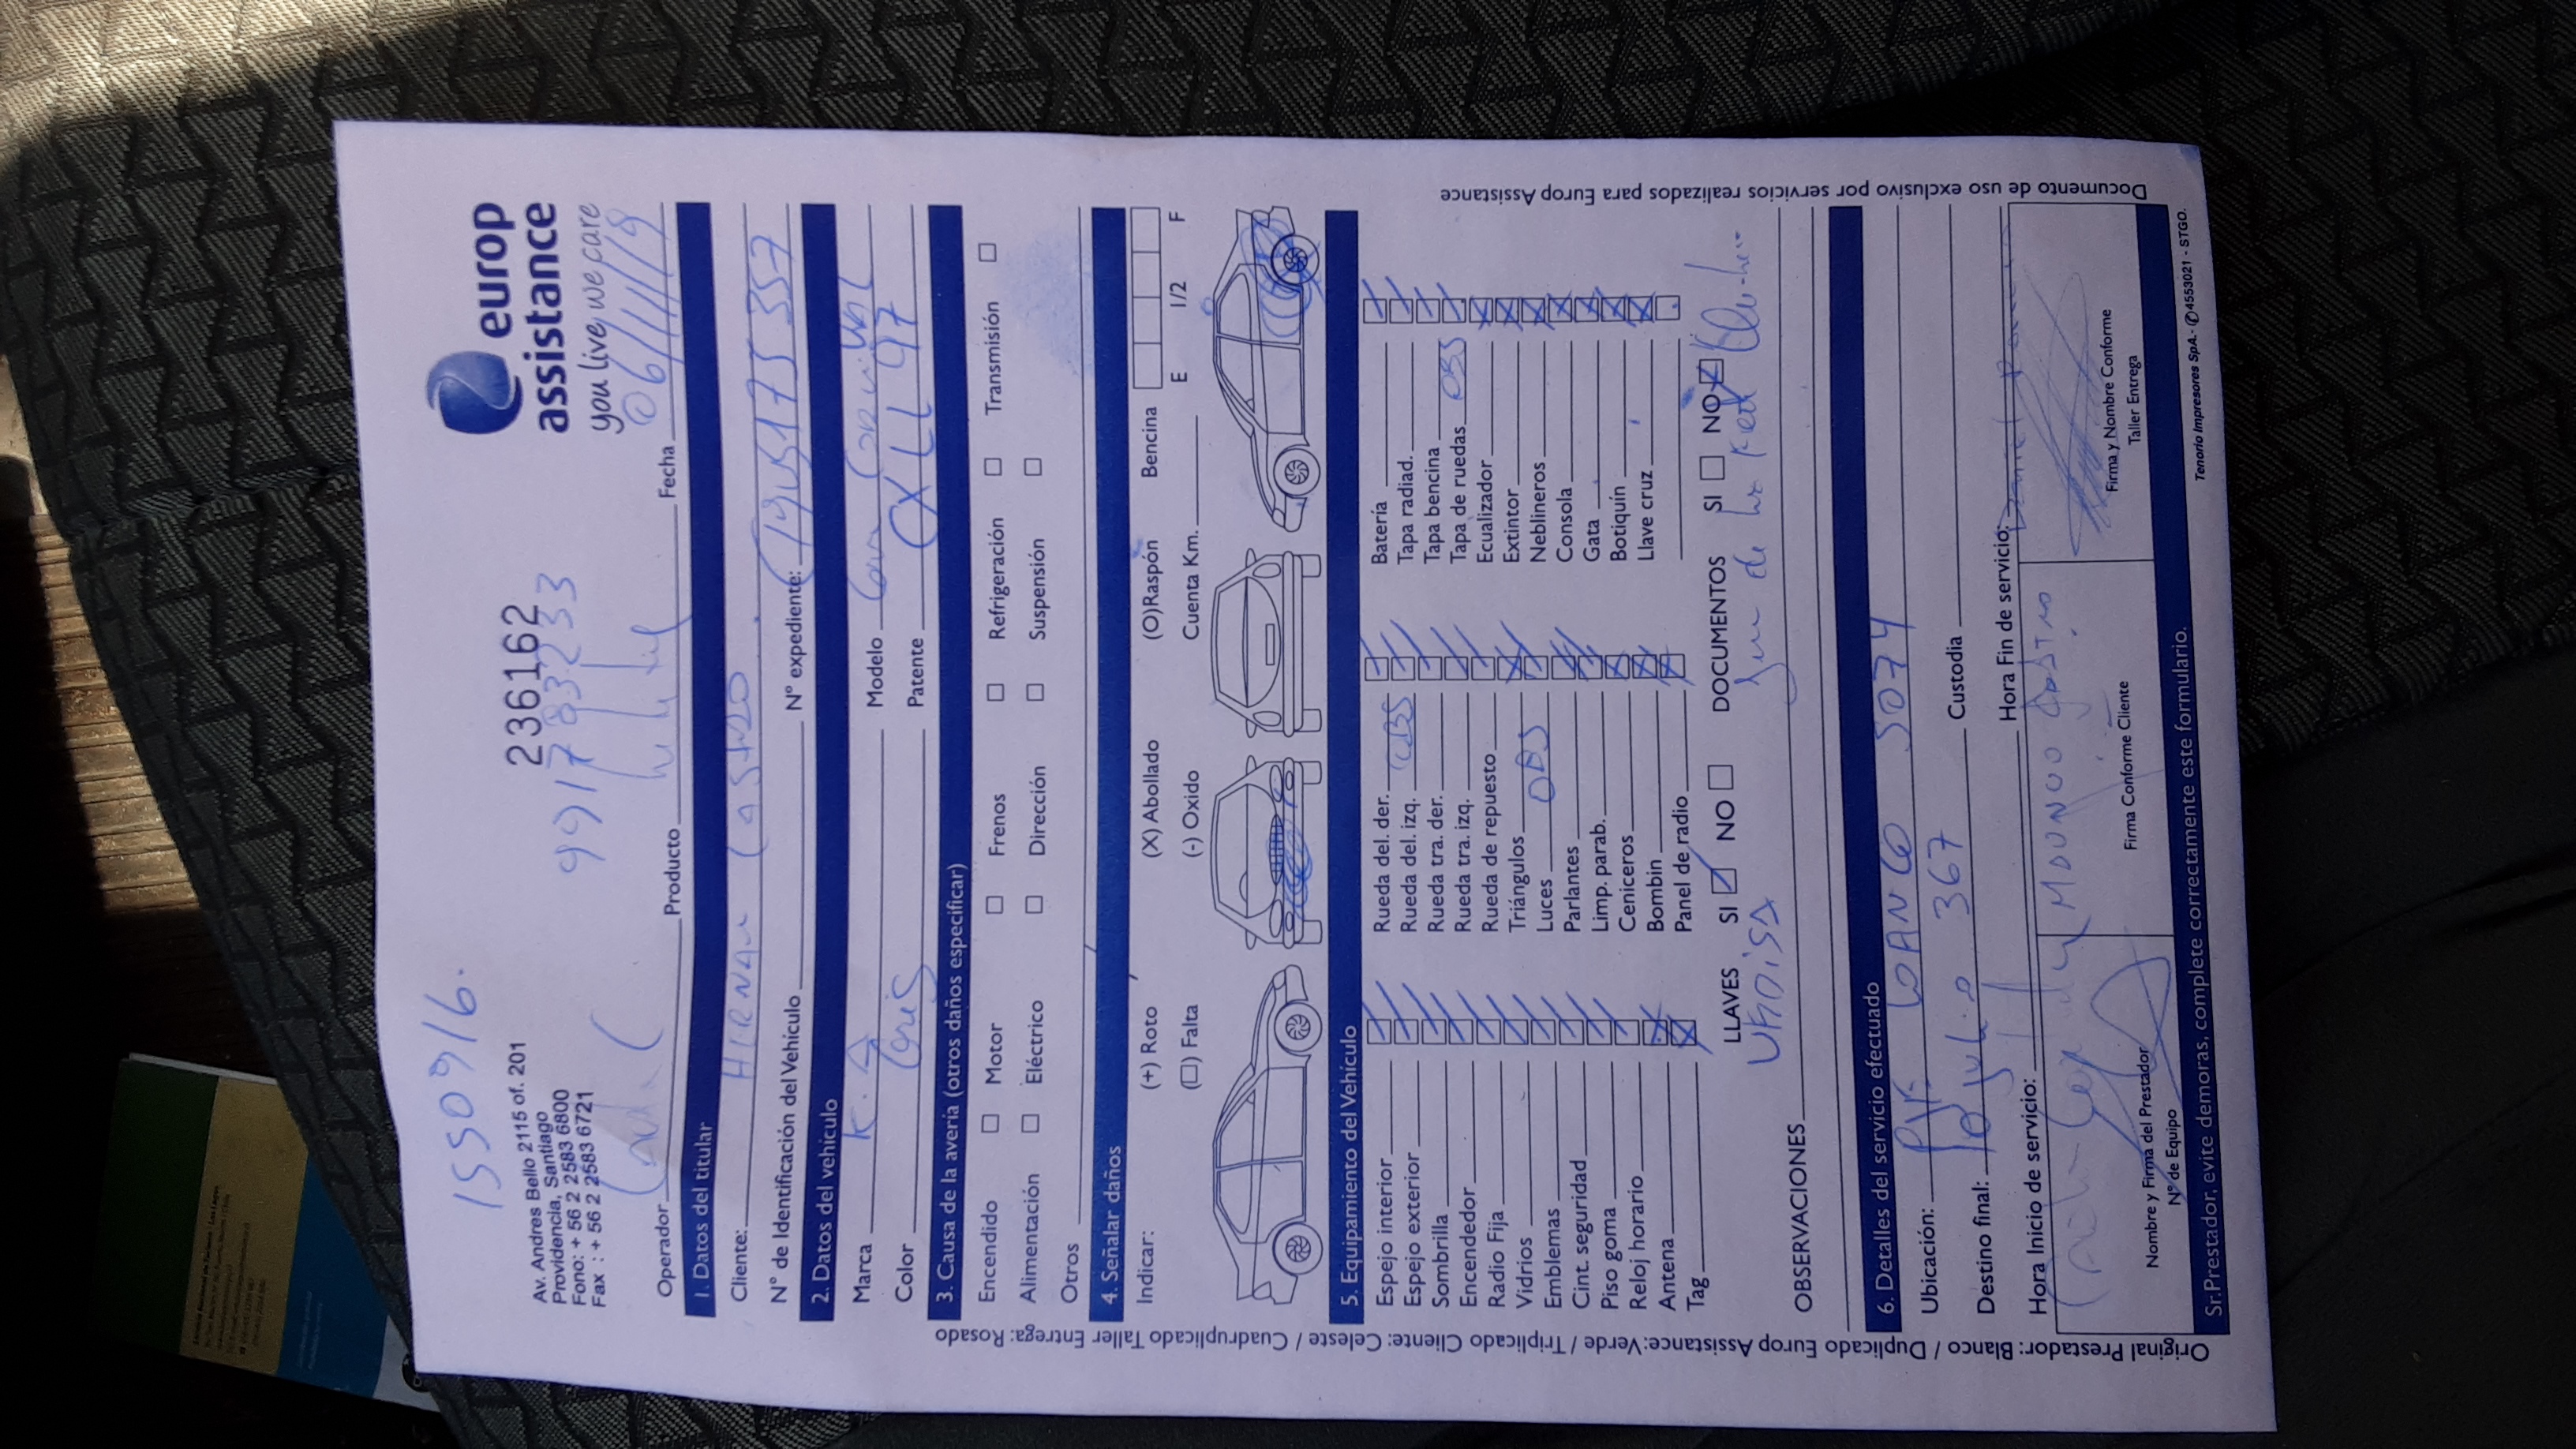 155096.
europ
assistance
you live, we care
Av. Andres Bello 2115 of. 201
Providencia, Santiago
Fono: + 56 2 2583 6800
Fax : + 56 2 2583 6721
236162
991783233
Operador Producto Fecha 06/11/19
1. Datos del titular
Cliente: HERNAN CASTRO
N° de Identificación del Vehículo N° expediente:
2. Datos del vehículo
Marca Modelo
Color Gris Patente CXLL97
3. Causa de la avería (otros daños especificar)
Encendido Motor Frenos Refrigeración Transmisión
Alimentación Eléctrico Dirección Suspensión
Otros
4. Señalar daños
Indicar: (+) Roto (X) Abollado (O)Raspón Bencina
(□) Falta (-) Oxido Cuenta Km. E 1/2 F
5. Equipamiento del Vehículo
Espejo interior Rueda del. der. OBS Batería
Espejo exterior Rueda del. izq. Tapa radiad.
Sombrilla Rueda tra. der. Tapa bencina
Encendedor Rueda tra. izq. Tapa de ruedas OBS
Radio Fija Rueda de repuesto Ecualizador
Vidrios Triángulos Extintor
Emblemas Luces OBS Neblineros
Cint. seguridad Parlantes Consola
Piso goma Limp. parab. Gata
Reloj horario Ceniceros Botiquín
Antena Bombin Llave cruz
Tag Panel de radio
LLAVES SI NO DOCUMENTOS SI NO
OBSERVACIONES
6. Detalles del servicio efectuado
Ubicación: 5074
Destino final: 367 Custodia
Hora Inicio de servicio: Hora Fin de servicio:
Nombre y Firma del Prestador
N° de Equipo
Firma Conforme Cliente
Firma y Nombre Conforme
Taller Entrega
Sr. Prestador, evite demoras, complete correctamente este formulario.
Tenorio Impresores SpA.- ✆4553021 - STGO.
Original Prestador: Blanco / Duplicado Europ Assistance: Verde / Triplicado Cliente: Celeste / Cuadruplicado Taller Entrega: Rosado
Documento de uso exclusivo por servicios realizados para Europ Assistance